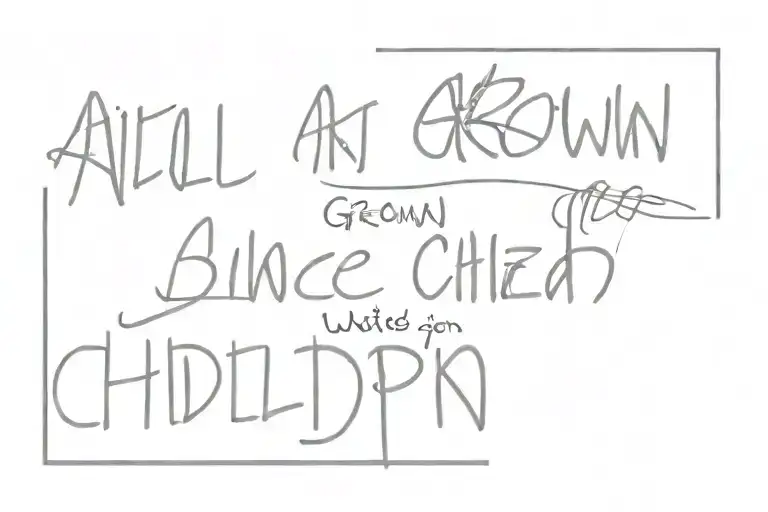 AiLLL AT GROWN
GROWN
SINCE CHIZD
Wsites gon
CHDLLDPN